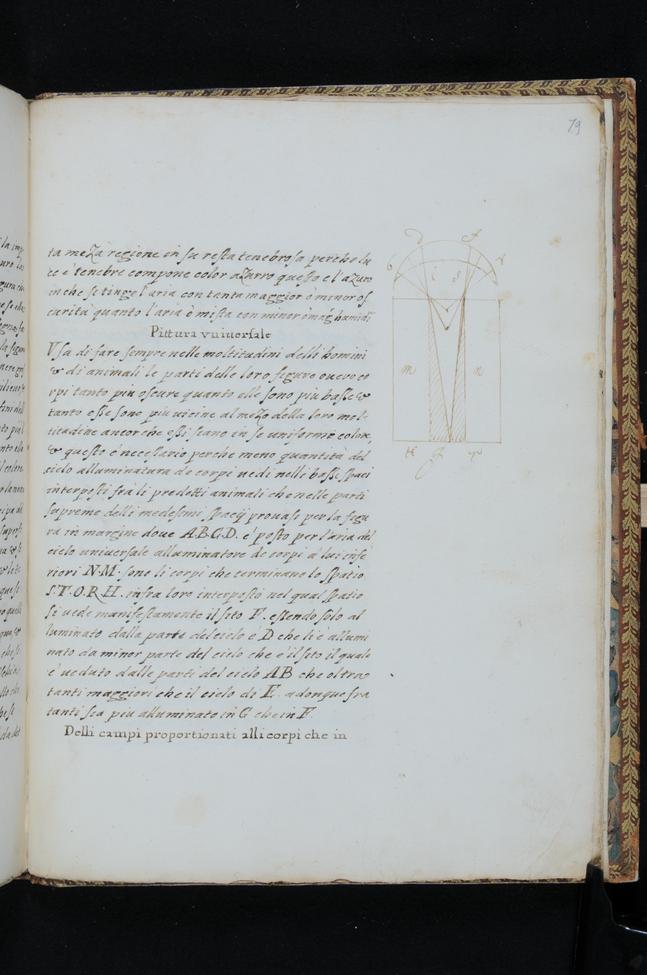 79
ta meza regione in sa resta tenebrosa perche lu
ce é tenebre compone color azurro questo e l'azuro
in che se tinge l'aria con tanta maggior ó minor os
carita quanto l'aria è mista con minor ó mag humidi
Pittura vniuersale
Vsa di fare sempre nelle moltitudini delli homini
& di animali le parti delle loro figure ouero co
rpi tanto piu oscure quanto elle sono piu basse &
tanto esse sono piu uicine al mezo della loro mol
titudine ancor che essi siano in se uniforme colore,
& questo è necessario perche meno quantità del
cielo alluminatura de corpi uedi nelli bassi spaci
interposti frá li predetti animali che nelle parti
supreme delli medesimi spacij prouasi per la figu
ra in margine doue A.B.C.D. é posto per l'aria del
cielo uniuersale alluminatore de corpi á lui infe
riori N.M. sono li corpi che terminano lo spatio
S.T.O.R.H. infra loro interposto nel qual spatio
si uede manifestamente il sito F. essendo solo al
luminato dalla parte del cielo é D che li é allumi
nato da minor parte del cielo che é il sito il quale
é ueduto dalle parte del cielo AB che oltra
tanti maggiori che il cielo de E adonque fra
tanti sea piu alluminato in G che in F.
Delli campi proportionati alli corpi che in
m
n